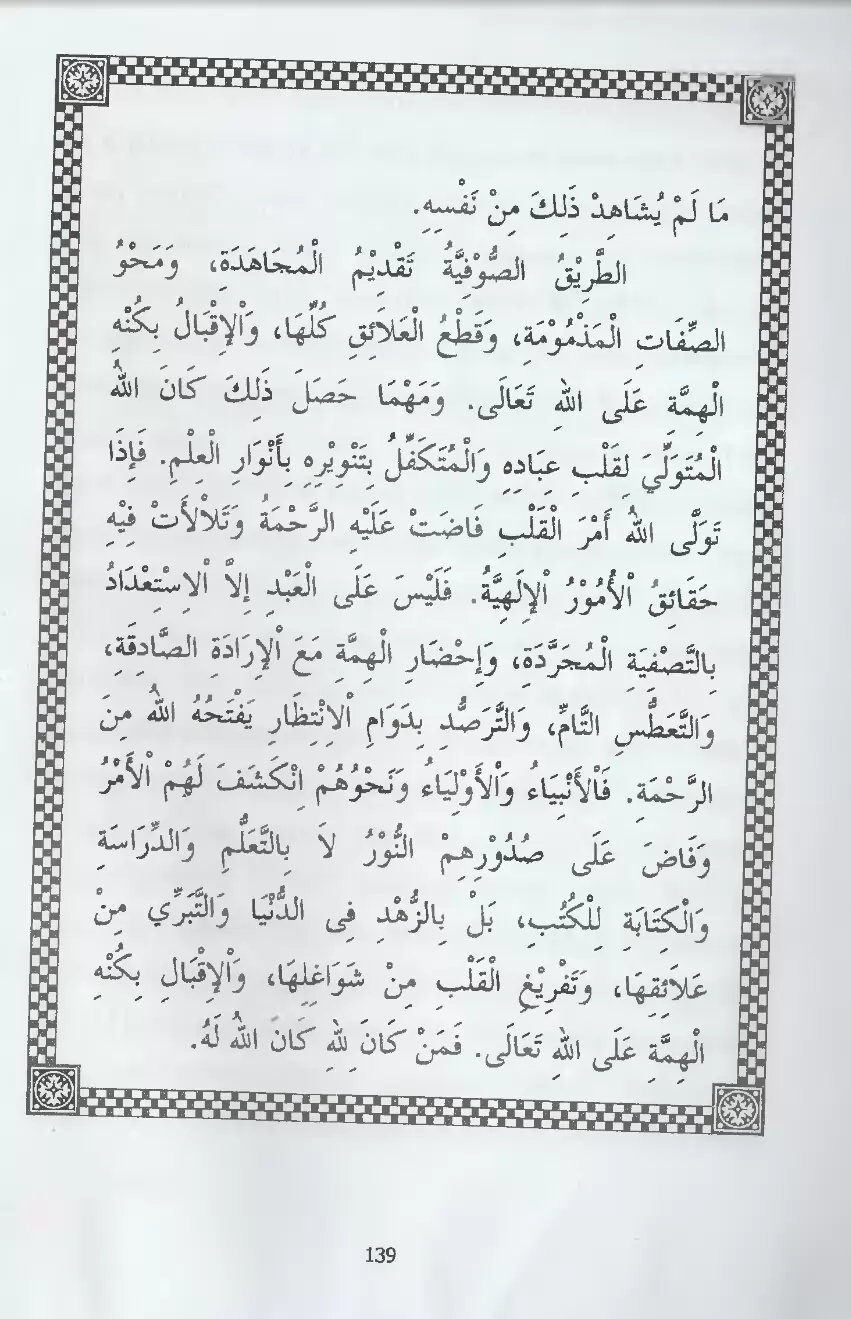 مَا لَمْ يُشَاهِدْ ذَلِكَ مِنْ نَفْسِهِ.
الطَّرِيْقُ الصُّوْفِيَّةُ تَقْدِيْمُ الْمُجَاهَدَةِ، وَمَحْوُ
الصِّفَاتِ الْمَذْمُوْمَةِ، وَقَطْعُ الْعَلاَئِقِ كُلِّهَا، وَاْلإِقْبَالُ بِكُنْهِ
الْهِمَّةِ عَلَى اللهِ تَعَالَى. وَمَهْمَا حَصَلَ ذَلِكَ كَانَ اللهُ
الْمُتَوَلِّيَ لِقَلْبِ عِبَادِهِ وَالْمُتَكَفِّلُ بِتَنْوِيْرِهِ بِأَنْوَارِ الْعِلْمِ. فَإِذَا
تَوَلَّى اللهُ أَمْرَ الْقَلْبِ فَاضَتْ عَلَيْهِ الرَّحْمَةُ وَتَلاْلأَتْ فِيْهِ
حَقَائِقُ اْلأُمُوْرُ اْلإِلَهِيَّةُ. فَلَيْسَ عَلَى الْعَبْدِ إِلاَّ اْلاِسْتِعْدَادُ
بِالتَّصْفِيَةِ الْمُجَرَّدَةِ، وَإِحْضَارِ الْهِمَّةِ مَعَ اْلإِرَادَةِ الصَّادِقَةِ،
وَالتَّعَطُّسِ التَّامِّ، وَالتَّرَصُّدِ بِدَوَامِ اْلاِنْتِظَارِ يَفْتَحُهُ اللهُ مِنَ
الرَّحْمَةِ. فَاْلأَنْبِيَاءُ وَاْلأَوْلِيَاءُ وَنَحْوُهُمْ اِنْكَشَفَ لَهُمْ اْلأَمْرُ
وَفَاضَ عَلَى صُدُوْرِهِمْ النُّوْرُ لاَ بِالتَّعَلُّمِ وَالدِّرَاسَةِ
وَالْكِتَابَةِ لِلْكُتُبِ، بَلْ بِالزُّهْدِ فِى الدُّنْيَا وَالتَّبَرِّي مِنْ
عَلاَئِقِهَا، وَتَفْرِيْغِ الْقَلْبِ مِنْ شَوَاغِلِهَا، وَاْلإِقْبَالِ بِكُنْهِ
الْهِمَّةِ عَلَى اللهِ تَعَالَى. فَمَنْ كَانَ لِلّٰهِ كَانَ اللهُ لَهُ.
139